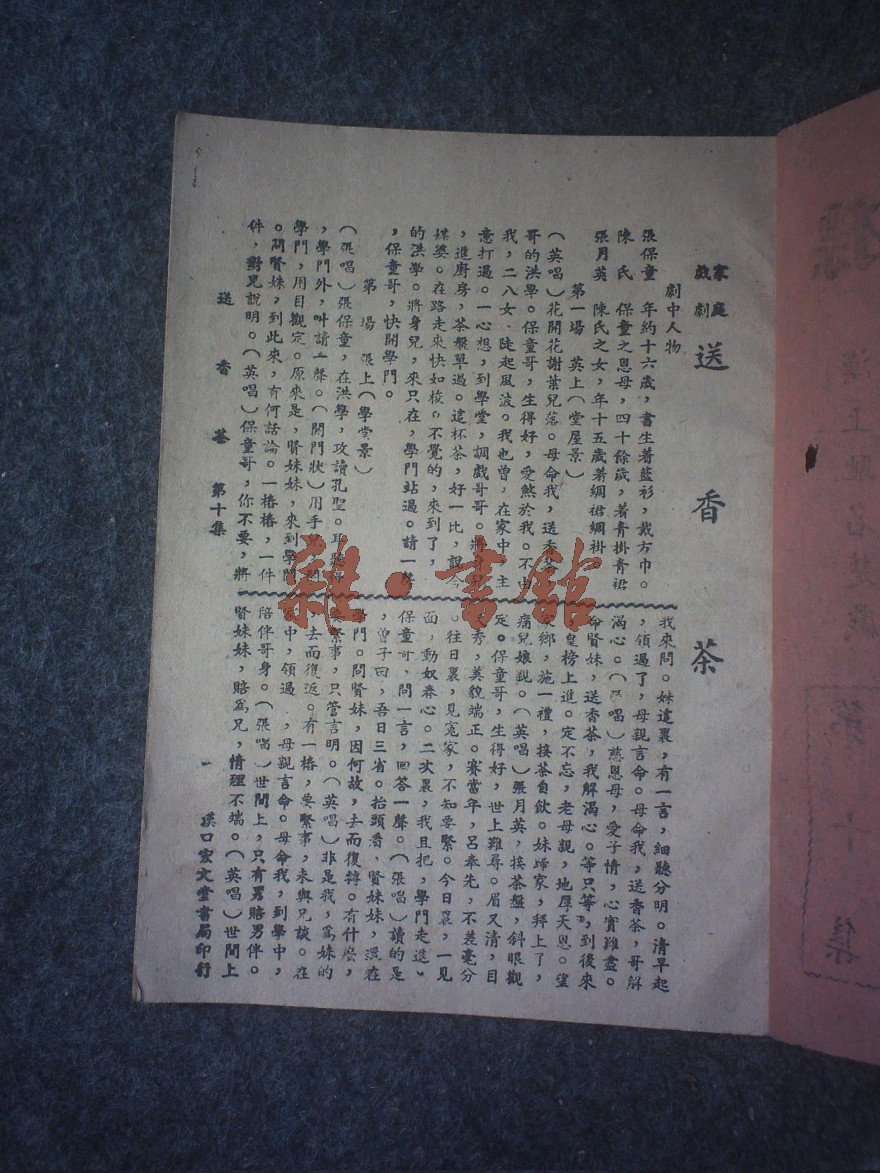 家庭
戲劇
送香茶
劇中人物
張保童 年約十六歲，書生着藍衫，戴方巾。
陳氏 保童之恩母，四十餘歲，著青掛青裙
張月英 陳氏之女，年十五歲着綢裙綢褂
第一場 英上（堂屋景）
（英唱）花開花謝葉兒落。母命我，送香茶
哥的洪學。保童哥，生得好，愛然於我。不由
我，二八女·陡起風波。我也曾，在家中，主
意打過。一心想，到學堂，調戲哥哥。將身
，進廚房，茶盤單過。這杯茶，好一比，說今
媒婆。在路走來快如梭。不覺的，來到了，
的洪學。將身兒，來只在，學門站過。請一聲
，保童哥，快開學門。
第 場 張上（學堂景）
（張唱）張保童，在洪學，攻讀孔聖。耳聽得
，學門外，叫請一聲。（開門狀）用手兒，開
學門，用目觀定。原來是，賢妹妹，來到學門
。問賢妹，到此來，有何話論。一樁樁，一件
件，對兄說明。（英唱）保童哥，你不要，將
我來問。妹這裏，有一言，細聽分明。清早起
，領過了，母親言命。母命我，送香茶，哥解
渴心。（張唱）慈恩母，愛子情，心實難盡。
命賢妹，送香茶，我解渴心。等只等，到後來
，皇榜上進。定不忘，老母親，地厚天恩。望
家鄉，施一禮，接茶自飲。妹歸家，拜上了，
痛兒娘親。（英唱）張月英，接茶盤，斜眼觀
定。保童哥，生得好，世上難尋。眉又清，目
又秀，美貌端正。賽當年，呂奉先，不差毫分
。往日裏，見寃家，不知要緊。今日裏，一見
面，動奴春心。二次裏，我且把，學門走進。
保童哥，問一言，回答一聲。（張唱）讀的是
，曾子曰，吾日三省。抬頭看，賢妹妹，還在
學門。問賢妹，因何故，去而復轉。有什麼，
要緊事，只管言明。（英唱）非是我，爲妹的
，去而復返。有一樁，要緊事，未與兄談。在
家中，領過，母親言命。母命我，到學中，
陪伴哥身。（張唱）世間上，只有男賠男伴。
賢妹妹，賠爲兄，情理不端。（英唱）世間上
送香茶 第十集
一
漢口宏文堂書局印行
雜·書館
漢上馳名楚戲
第十集